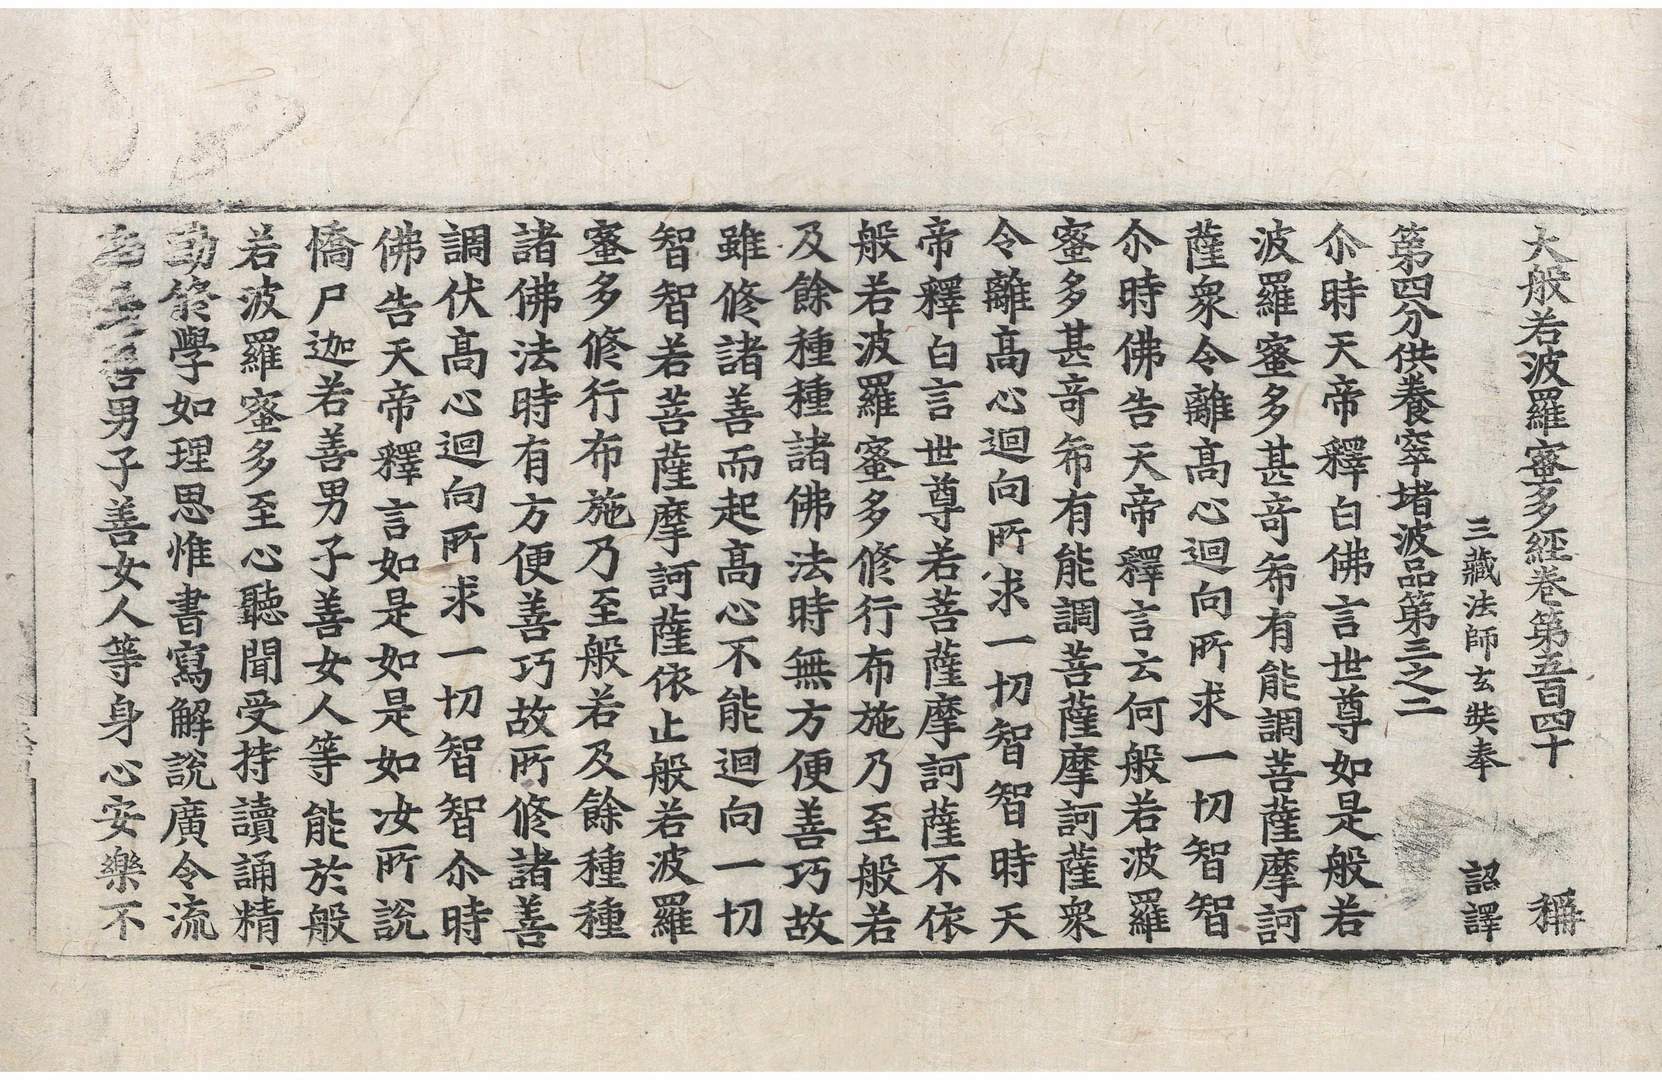 大般若波羅蜜多經卷第五百四十 稱
三藏法師玄奘奉 詔譯
第四分供養窣堵波品第三之二
尒時天帝釋白佛言世尊如是般若
波羅蜜多甚奇希有能調菩薩摩訶
薩衆令離高心迴向所求一切智智
尒時佛告天帝釋言云何般若波羅
蜜多甚奇希有能調菩薩摩訶薩衆
令離高心迴向所求一切智智時天
帝釋白言世尊若菩薩摩訶薩不依
般若波羅蜜多修行布施乃至般若
及餘種種諸佛法時無方便善巧故
雖修諸善而起高心不能迴向一切
智智若菩薩摩訶薩依止般若波羅
蜜多修行布施乃至般若及餘種種
諸佛法時有方便善巧故所修諸善
調伏高心迴向所求一切智智尒時
佛告天帝釋言如是如是如汝所說
憍尸迦若善男子善女人等能於般
若波羅蜜多至心聽聞受持讀誦精
勤修學如理思惟書寫解說廣令流
善男子善女人等身心安樂不